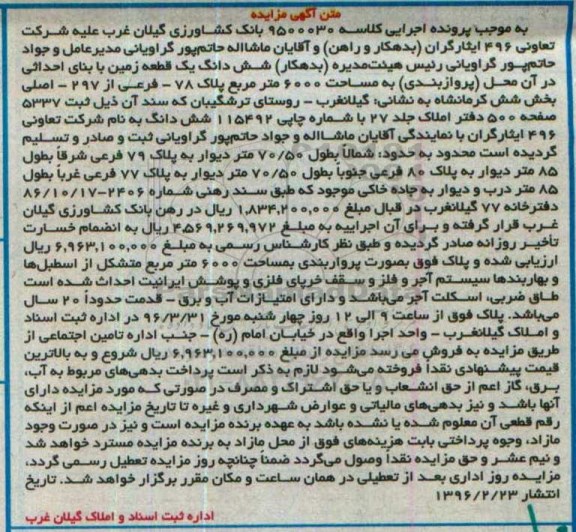 متن آگهی مزایده
به موجب پرونده اجرایی کلاسه ۹۵۰۰۰۳۰ بانک کشاورزی گیلان غرب علیه شرکت
تعاونی ۴۹۶ ایثارگران (بدهکار و راهن) و آقایان ماشااله حاتم‌پور گراویانی مدیرعامل و جواد
حاتم‌پور گراویانی رئیس هیئت‌مدیره (بدهکار) شش دانگ یک قطعه زمین با بنای احداثی
در آن محل (پرواربندی) به مساحت ۶۰۰۰ متر مربع پلاک ۷۸ - فرعی از ۲۹۷ - اصلی
بخش شش کرمانشاه به نشانی: گیلانغرب - روستای ترشگیبان که سند آن ذیل ثبت ۵۳۳۷
صفحه ۵۰۰ دفتر املاک جلد ۲۷ با شماره چاپی ۱۱۵۴۹۲ شش دانگ به نام شرکت تعاونی
۴۹۶ ایثارگران با نمایندگی آقایان ماشااله و جواد حاتم‌پور گراویانی ثبت و صادر و تسلیم
گردیده است محدود به حدود: شمالاً بطول ۷۰/۵۰ متر دیوار به پلاک ۷۹ فرعی شرقاً بطول
۸۵ متر دیوار به پلاک ۸۰ فرعی جنوباً بطول ۷۰/۵۰ متر دیوار به پلاک ۷۷ فرعی غرباً بطول
۸۵ متر درب و دیوار به جاده خاکی موجود که طبق سند رهنی شماره ۲۴۰۶-۸۶/۱۰/۱۷
دفترخانه ۷۷ گیلانغرب در قبال مبلغ ۱,۸۳۴,۲۰۰,۰۰۰ ریال در رهن بانک کشاورزی گیلان
غرب قرار گرفته و برای آن اجراییه به مبلغ ۴,۵۶۹,۲۶۹,۹۷۲ ریال به انضمام خسارت
تأخیر روزانه صادر گردیده و طبق نظر کارشناس رسمی به مبلغ ۶,۹۶۳,۱۰۰,۰۰۰ ریال
ارزیابی شده و پلاک فوق بصورت پرواربندی بمساحت ۶۰۰۰ متر مربع متشکل از اسطبل‌ها
و بهاربندها سیستم آجر و فلز و سقف خرپای فلزی و پوشش ایرانیت احداث شده است
طاق ضربی، اسکلت آجر می‌باشد و دارای امتیازات آب و برق - قدمت حدوداً ۲۰ سال
می‌باشد. پلاک فوق از ساعت ۹ الی ۱۲ روز چهار شنبه مورخ ۹۶/۳/۳۱ در اداره ثبت اسناد
و املاک گیلانغرب - واحد اجرا واقع در خیابان امام (ره) - جنب اداره تامین اجتماعی از
طریق مزایده به فروش می رسد مزایده از مبلغ ۶,۹۶۳,۱۰۰,۰۰۰ ریال شروع و به بالاترین
قیمت پیشنهادی نقداً فروخته می‌شود لازم به ذکر است پرداخت بدهی‌های مربوط به آب،
برق، گاز اعم از حق انشعاب و یا حق اشتراک و مصرف در صورتی که مورد مزایده دارای
آنها باشد و نیز بدهی‌های مالیاتی و عوارض شهرداری و غیره تا تاریخ مزایده اعم از اینکه
رقم قطعی آن معلوم شده یا نشده باشد به عهده برنده مزایده است و نیز در صورت وجود
مازاد، وجوه پرداختی بابت هزینه‌های فوق از محل مازاد به برنده مزایده مسترد خواهد شد
و نیم عشر و حق مزایده نقداً وصول می‌گردد ضمناً چنانچه روز مزایده تعطیل رسمی گردد،
مزایده روز اداری بعد از تعطیلی در همان ساعت و مکان مقرر برگزار خواهد شد. تاریخ
انتشار ۱۳۹۶/۲/۲۳
اداره ثبت اسناد و املاک گیلان غرب